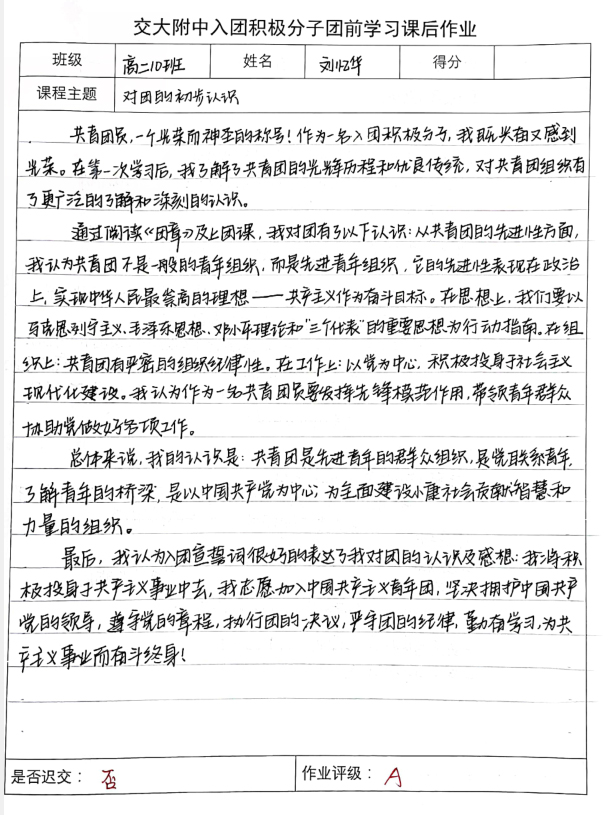 交大附中入团积极分子团前学习课后作业
班级 高二10班 姓名 刘忆华 得分
课程主题 对团的初步认识
共青团员,一个光荣而神圣的称号!作为一名入团积极分子,我既兴奋又感到
光荣。在第一次学习后,我了解了共青团的光辉历程和优良传统,对共青团组织有
了更广泛的了解和深刻的认识。
通过阅读《团章》及上团课,我对团有了以下认识:从共青团的先进性方面,
我认为共青团不是一般的青年组织,而是先进青年组织,它的先进性表现在政治
上,实现中华人民最崇高的理想——共产主义作为奋斗目标。在思想上,我们要以
马克思列宁主义、毛泽东思想、邓小平理论和“三个代表”的重要思想为行动指南。在组
织上:共青团有严密的组织纪律性。在工作上:以党为中心,积极投身于社会主义
现代化建设。我认为作为一名共青团员要发挥先锋模范作用,带领青年群众
协助党做好各项工作。
总体来说,我的认识是:共青团是先进青年的群众组织,是党联系青年,
了解青年的桥梁,是以中国共产党为中心,为全面建设小康社会贡献智慧和
力量的组织。
最后,我认为入团宣誓词很好的表达了我对团的认识及感想:我将积
极投身于共产主义事业中去,我志愿加入中国共产主义青年团,坚决拥护中国共产
党的领导,遵守党的章程,执行团的决议,严守团的纪律,勤奋学习,为共
产主义事业而奋斗终身!
是否迟交: 否 作业评级: A